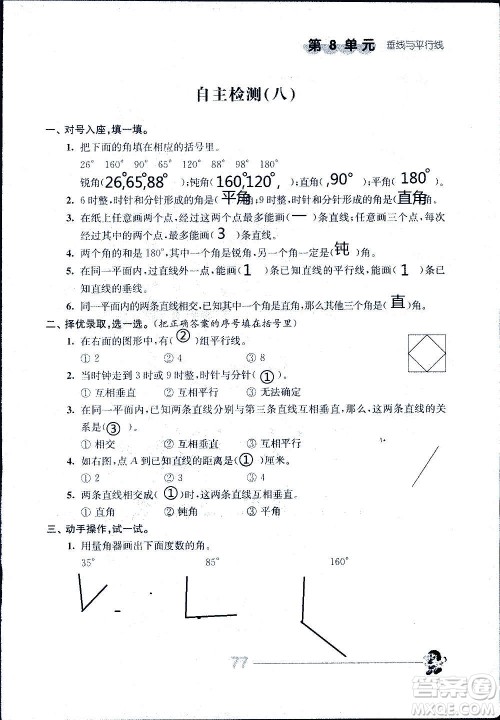 第 8 单 元 垂线与平行线
自主检测(八)
一、对号入座,填一填。
1. 把下面的角填在相应的括号里。
26° 160° 90° 65° 120° 98° 88° 180°
锐角(26,65,88°);钝角(160,120°,);直角(,90°);平角(180°)
2. 6时整,时针和分针形成的角是(平角)角;9时整,时针和分针形成的角是(直角)角。
3. 在纸上任意画两个点,经过这两个点最多能画(一)条直线;任意画三个点,每次经过
其中的两个点,最多能画(3)条直线。
4. 两个角的和是180°,其中一个角是锐角,另一个角一定是(钝)角。
5. 在同一平面内,过直线外一点,能画(1)条已知直线的平行线,能画(1)条已知
直线的垂线。
6. 同一平面内的两条直线相交成4个角,如果其中一个角是90°,那么其他三个角都是(直)角。
二、择优录取,选一选。(把正确答案的序号填在括号里)
1. 在右面的图形中,有(②)组平行线。
① 2 ② 4 ③ 8
2. 当时钟走到3时或9时整,时针与分针(①)。
① 互相垂直 ② 互相平行 ③ 无法确定
3. 在同一平面内,已知两条直线分别与第三条直线互相垂直,那么,这两条直线的关
系是(③)。
① 相交 ② 互相垂直 ③ 互相平行
4. 如右图,点A到已知直线的距离是(①)厘米。
① 1 ② 2 ③ 3
5. 两条直线相交成(①)时,这两条直线互相垂直。
① 直角 ② 钝角 ③ 锐角
三、动手操作,试一试。
1. 用量角器画出下面度数的角。
35° 85° 160°
77
答案圈